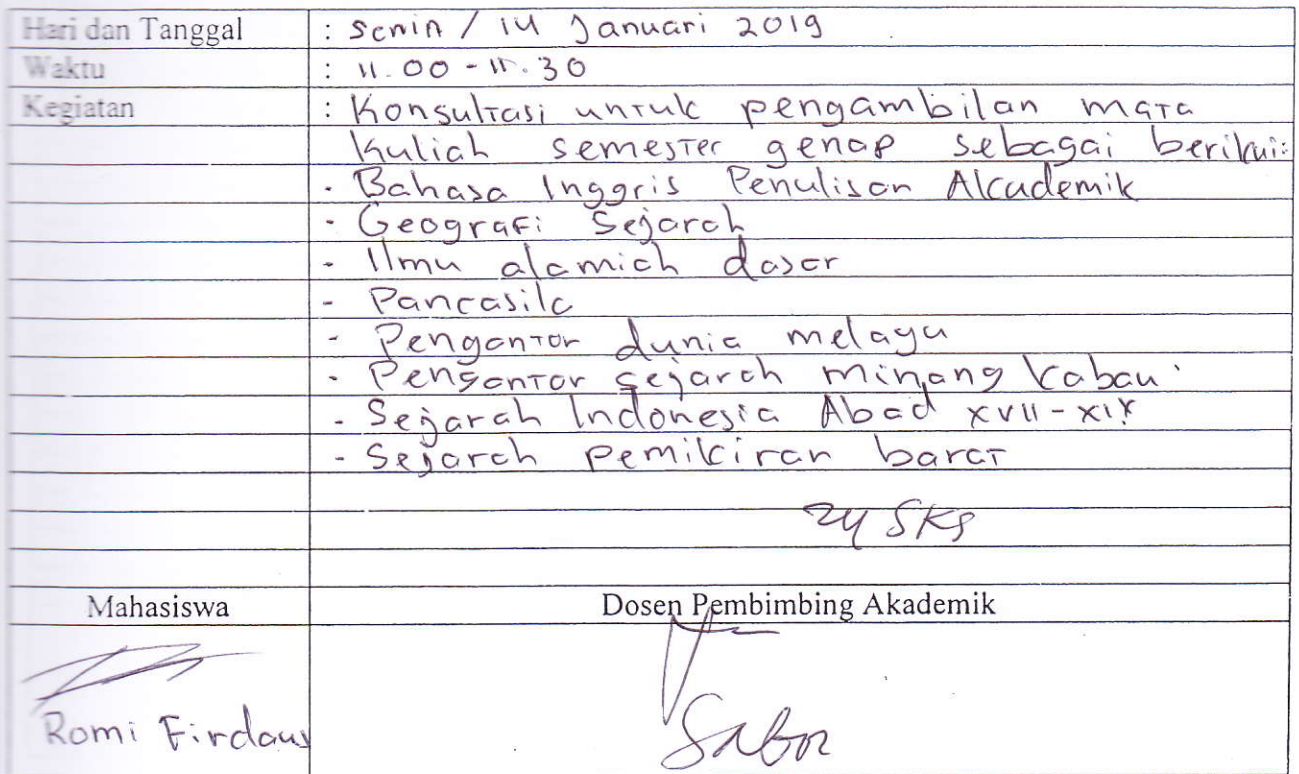 Hari dan Tanggal : Senin / 14 Januari 2019
Waktu : 11.00 - 11.30
Kegiatan : Konsultasi untuk pengambilan mata
kuliah semester genap sebagai berikut:
- Bahasa Inggris Penulisan Akademik
- Geografi Sejarah
- Ilmu alamiah dasar
- Pancasila
- Pengantar dunia melayu
- Pengantar sejarah minang kabau
- Sejarah Indonesia Abad XVII-XIX
- Sejarah pemikiran barat
24 SKS
Mahasiswa Dosen Pembimbing Akademik
Romi Firdaus